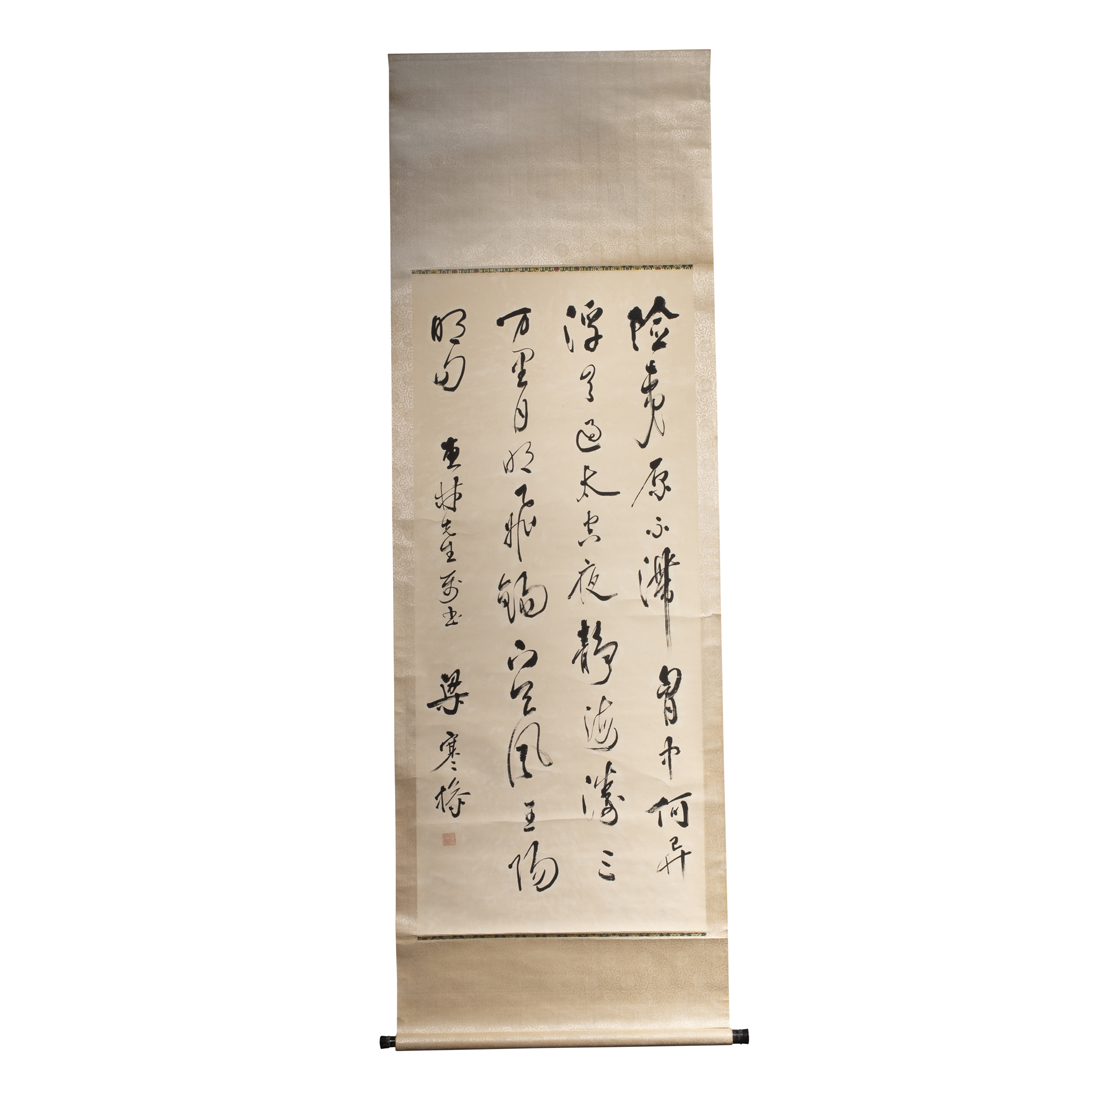 險夷原不滯胷中何異
浮雲過太空夜靜海濤三
万里月明飛錫下天風王陽
明句 先生屬書 梁寒操